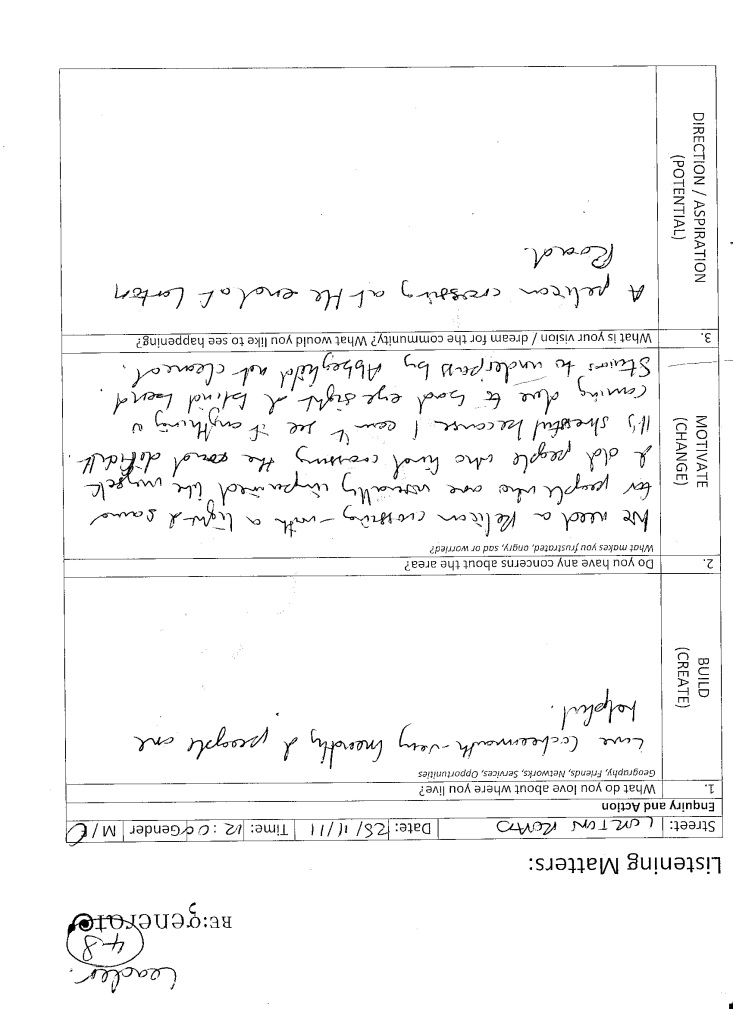 Leader.
4-8
RE:generate
Listening Matters:
Street: LORTON ROAD Date: 28/11/11 Time: 12:00 Gender M/F
Enquiry and Action
1. What do you love about where you live?
Geography, Friends, Networks, Services, Opportunities
BUILD
(CREATE)
Love Cockermouth - very friendly & people are
helpful.
2. Do you have any concerns about the area?
What makes you frustrated, angry, sad or worried?
MOTIVATE
(CHANGE)
We need a Pelican crossing - with a light & same
for people who are visually impaired like myself
& old people who find crossing the road difficult.
It's stressful because I can't see if anything is
coming due to bad eye sight & blind bend.
Stairs to underpass by Abbeyfield not cleared.
3. What is your vision / dream for the community? What would you like to see happening?
DIRECTION / ASPIRATION
(POTENTIAL)
A pelican crossing at the end of Lorton
Road.